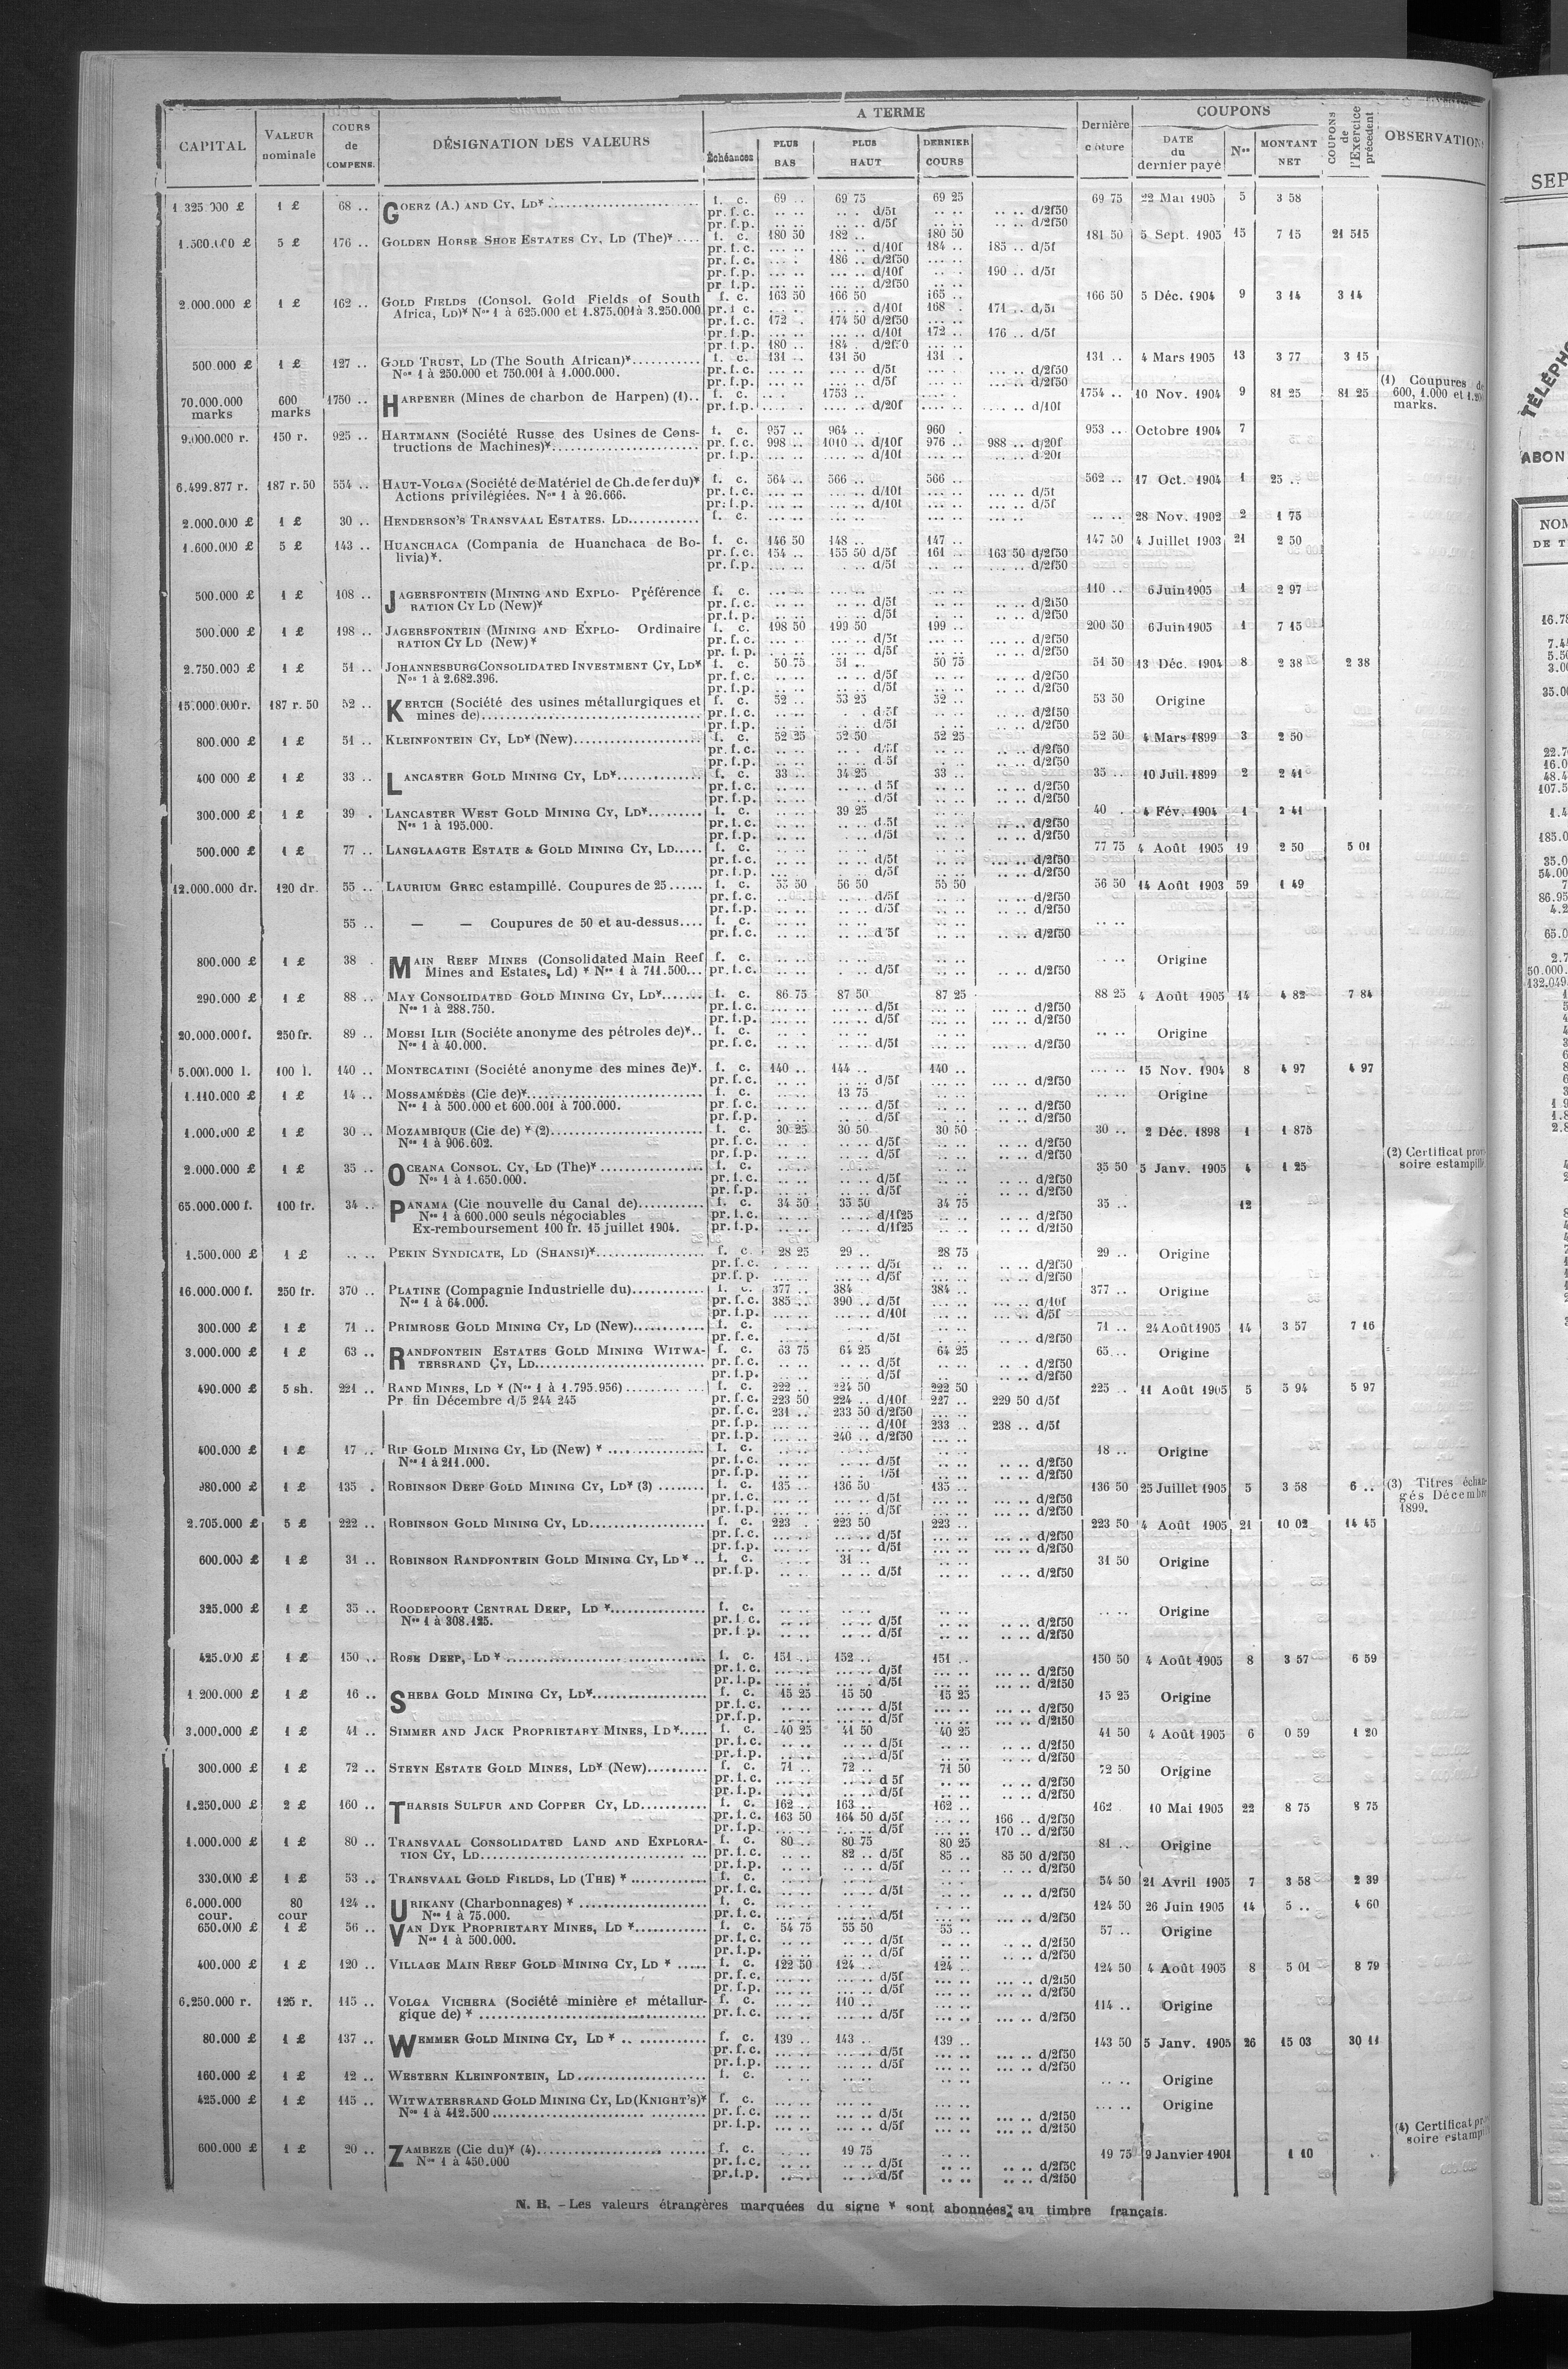 CAPITAL | VALEUR nominale | COURS de COMPENS. | DÉSIGNATION DES VALEURS | A TERME | Dernière clôture | COUPONS | COUPONS de l'Exercice précédent | OBSERVATIONS
Échéances | PLUS BAS | PLUS HAUT | DERNIER COURS | DATE du dernier payé | Nos | MONTANT NET
1 325 000 £ | 1 £ | 68 .. | GOERZ (A.) AND CY, LD* | f. c. | 69 .. | 69 75 | 69 25 | 69 75 | 22 Mai 1905 | 5 | 3 58
pr. f. c. | .. .. | .. .. d/5f | .. .. | .. .. d/2f50
pr. f. p. | .. .. | .. .. d/5f | .. .. | .. .. d/2f50
1.500.000 £ | 5 £ | 176 .. | GOLDEN HORSE SHOE ESTATES CY, LD (The)* | f. c. | 180 50 | 182 .. | 180 50 | 181 50 | 5 Sept. 1905 | 15 | 7 15 | 21 515
pr. f. c. | .. .. | .. .. d/10f | 184 .. | 185 .. d/5f
pr. f. c. | .. .. | 186 .. d/2f50
pr. f. p. | .. .. | .. .. d/10f | .. .. | 190 .. d/5f
pr. f. p. | .. .. | .. .. d/2f50
2.000.000 £ | 1 £ | 162 .. | GOLD FIELDS (Consol. Gold Fields of South | f. c. | 163 50 | 166 50 | 165 .. | 166 50 | 5 Déc. 1904 | 9 | 3 14 | 3 14
Africa, LD)* Nos 1 à 625.000 et 1.875.001 à 3.250.000 | pr. f. c. | .. .. | .. .. d/10f | 168 .. | 171 .. d/5f
pr. f. c. | 172 .. | 174 50 d/2f50
pr. f. p. | .. .. | .. .. d/10f | 172 .. | 176 .. d/5f
pr. f. p. | 180 .. | 184 .. d/2f50
500.000 £ | 1 £ | 127 .. | GOLD TRUST, LD (The South African)* | f. c. | 131 .. | 131 50 | 131 .. | 131 .. | 4 Mars 1905 | 13 | 3 77 | 3 15
Nos 1 à 250.000 et 750.001 à 1.000.000. | pr. f. c. | .. .. | .. .. d/5f | .. .. d/2f50
pr. f. p. | .. .. | .. .. d/5f | .. .. d/2f50
70.000.000 marks | 600 marks | 1750 .. | HARPENER (Mines de charbon de Harpen) (1).. | f. c. | .. .. | 1753 .. | .. .. | 1754 .. | 10 Nov. 1904 | 9 | 81 25 | 81 25 | (1) Coupures de 600, 1.000 et 1.200 marks.
pr. f. p. | .. .. | .. .. d/20f | .. .. | .. .. d/10f
9.000.000 r. | 150 r. | 925 .. | HARTMANN (Société Russe des Usines de Cons- | f. c. | 957 .. | 964 .. | 960 . | 953 .. | Octobre 1904 | 7
tructions de Machines)* | pr. f. c. | 998 .. | 1010 .. d/10f | 976 .. | 988 .. d/20f
pr. f. p. | .. .. | .. .. d/10f | .. .. | d/20f
6.499.877 r. | 187 r. 50 | 554 .. | HAUT-VOLGA (Société de Matériel de Ch. de fer du)* | f. c. | 564 .. | 566 .. | 566 .. | 562 .. | 17 Oct. 1904 | 1 | 25 ..
Actions privilégiées. Nos 1 à 26.666. | pr. f. c. | .. .. | .. .. d/10f | .. .. d/5f
pr. f. p. | .. .. | .. .. d/10f | .. .. d/5f
2.000.000 £ | 1 £ | 30 .. | HENDERSON'S TRANSVAAL ESTATES. LD | f. c. | .. .. | .. .. | .. .. | .. .. | 28 Nov. 1902 | 2 | 1 75
1.600.000 £ | 5 £ | 143 .. | HUANCHACA (Compania de Huanchaca de Bo- | f. c. | 146 50 | 148 .. | 147 .. | 147 50 | 4 Juillet 1903 | 21 | 2 50
livia)*. | pr. f. c. | 154 .. | 155 50 d/5f | 161 .. | 163 50 d/2f50
pr. f. p. | .. .. | .. .. d/5f | .. .. | .. .. d/2f50
500.000 £ | 1 £ | 108 .. | JAGERSFONTEIN (MINING AND EXPLO- Préférence | f. c. | .. .. | .. .. | .. .. | 110 .. | 6 Juin 1905 | 1 | 2 97
RATION CY LD (New)* | pr. f. c. | .. .. | .. .. d/5f | .. .. | .. .. d/2f50
pr. f. p. | .. .. | .. .. d/5f | .. .. | .. .. d/2f50
500.000 £ | 1 £ | 198 .. | JAGERSFONTEIN (MINING AND EXPLO- Ordinaire | f. c. | 198 50 | 199 50 | 199 .. | 200 50 | 6 Juin 1905 | 1 | 7 15
RATION CY LD (New)* | pr. f. c. | .. .. | .. .. d/5f | .. .. | .. .. d/2f50
pr. f. p. | .. .. | .. .. d/5f | .. .. | .. .. d/2f50
2.750.000 £ | 1 £ | 51 .. | JOHANNESBURG CONSOLIDATED INVESTMENT CY, LD* | f. c. | 50 75 | 51 .. | 50 75 | 51 50 | 13 Déc. 1904 | 8 | 2 38 | 2 38
Nos 1 à 2.682.396. | pr. f. c. | .. .. | .. .. d/5f | .. .. | .. .. d/2f50
pr. f. p. | .. .. | .. .. d/5f | .. .. | .. .. d/2f50
15.000.000 r. | 187 r. 50 | 52 .. | KERTCH (Société des usines métallurgiques et | f. c. | 52 .. | 53 25 | 52 .. | 53 50 | Origine
mines de) | pr. f. c. | .. .. | .. .. d/5f | .. .. | .. .. d/2f50
pr. f. p. | .. .. | .. .. d/5f | .. .. | .. .. d/2f50
800.000 £ | 1 £ | 51 .. | KLEINFONTEIN CY, LD* (New) | f. c. | 52 25 | 52 50 | 52 25 | 52 50 | 4 Mars 1899 | 3 | 2 50
pr. f. c. | .. .. | .. .. d/5f | .. .. | .. .. d/2f50
pr. f. p. | .. .. | .. .. d/5f | .. .. | .. .. d/2f50
400 000 £ | 1 £ | 33 .. | LANCASTER GOLD MINING CY, LD* | f. c. | 33 .. | 34 25 | 33 .. | 35 .. | 10 Juil. 1899 | 2 | 2 41
pr. f. c. | .. .. | .. .. d/5f | .. .. | .. .. d/2f50
pr. f. p. | .. .. | .. .. d/5f | .. .. | .. .. d/2f50
300.000 £ | 1 £ | 39 . | LANCASTER WEST GOLD MINING CY, LD* | f. c. | .. .. | 39 25 | .. .. | 40 . | 4 Fév. 1904 | 1 | 2 41
Nos 1 à 195.000. | pr. f. c. | .. .. | .. .. d/5f | .. .. | .. .. d/2f50
pr. f. p. | .. .. | .. .. d/5f | .. .. | .. .. d/2f50
500.000 £ | 1 £ | 77 .. | LANGLAAGTE ESTATE & GOLD MINING CY, LD | f. c. | .. .. | .. .. | .. .. | 77 75 | 4 Août 1905 | 19 | 2 50 | 5 01
pr. f. c. | .. .. | .. .. d/5f | .. .. | .. .. d/2f50
pr. f. p. | .. .. | .. .. d/5f | .. .. | .. .. d/2f50
12.000.000 dr. | 120 dr. | 55 .. | LAURIUM GREC estampillé. Coupures de 25 | f. c. | 55 50 | 56 50 | 55 50 | 56 50 | 14 Août 1903 | 59 | 1 49
pr. f. c. | .. .. | .. .. d/5f | .. .. | .. .. d/2f50
pr. f. p. | .. .. | .. .. d/5f | .. .. | .. .. d/2f50
55 .. | — — Coupures de 50 et au-dessus | f. c. | .. .. | .. .. | .. .. | .. ..
pr. f. c. | .. .. | .. .. d/5f | .. .. | .. .. d/2f50
800.000 £ | 1 £ | 38 . | MAIN REEF MINES (Consolidated Main Reef | f. c. | .. .. | .. .. | .. .. | .. .. | Origine
Mines and Estates, Ld) * Nos 1 à 711.500... | pr. f. c. | .. .. | .. .. d/5f | .. .. | .. .. d/2f50
290.000 £ | 1 £ | 88 .. | MAY CONSOLIDATED GOLD MINING CY, LD* | f. c. | 86 75 | 87 50 | 87 25 | 88 25 | 4 Août 1905 | 14 | 4 82 | 7 84
Nos 1 à 288.750. | pr. f. c. | .. .. | .. .. d/5f | .. .. | .. .. d/2f50
pr. f. p. | .. .. | .. .. d/5f | .. .. | .. .. d/2f50
20.000.000 f. | 250 fr. | 89 .. | MOESI ILIR (Sociéte anonyme des pétroles de)*.. | f. c. | .. .. | .. .. | .. .. | .. .. | Origine
Nos 1 à 40.000. | pr. f. c. | .. .. | .. .. d/5f | .. .. | .. .. d/2f50
5.000.000 l. | 100 l. | 140 .. | MONTECATINI (Société anonyme des mines de)*. | f. c. | 140 .. | 144 .. | 140 .. | .. .. | 15 Nov. 1904 | 8 | 4 97 | 4 97
pr. f. c. | .. .. | .. .. d/5f | .. .. | .. .. d/2f50
1.110.000 £ | 1 £ | 14 .. | MOSSAMÉDÈS (Cie de)* | f. c. | .. .. | 13 75 | .. .. | .. .. | Origine
Nos 1 à 500.000 et 600.001 à 700.000. | pr. f. c. | .. .. | .. .. d/5f | .. .. | .. .. d/2f50
pr. f. p. | .. .. | .. .. d/5f | .. .. | .. .. d/2f50
1.000.000 £ | 1 £ | 30 .. | MOZAMBIQUE (Cie de) * (2) | f. c. | 30 25 | 30 50 | 30 50 | 30 .. | 2 Déc. 1898 | 1 | 1 875 | (2) Certificat provisoire estampillé
Nos 1 à 906.602. | pr. f. c. | .. .. | .. .. d/5f | .. .. | .. .. d/2f50
pr. f. p. | .. .. | .. .. d/5f | .. .. | .. .. d/2f50
2.000.000 £ | 1 £ | 35 .. | OCEANA CONSOL. CY, LD (The)* | f. c. | .. .. | .. .. | .. .. | 35 50 | 5 Janv. 1905 | 4 | 1 25
Nos 1 à 1.650.000. | pr. f. c. | .. .. | .. .. d/5f | .. .. | .. .. d/2f50
pr. f. p. | .. .. | .. .. d/5f | .. .. | .. .. d/2f50
65.000.000 f. | 100 fr. | 34 .. | PANAMA (Cie nouvelle du Canal de) | f. c. | 34 50 | 35 50 | 34 75 | 35 .. | 12
Nos 1 à 600.000 seuls négociables | pr. f. c. | .. .. | .. .. d/1f25 | .. .. d/2f50
Ex-remboursement 100 fr. 15 juillet 1904. | pr. f. p. | .. .. | .. .. d/1f25 | .. .. d/2f50
1.500.000 £ | 1 £ | .. .. | PEKIN SYNDICATE, LD (SHANSI)* | f. c. | 28 25 | 29 .. | 28 75 | 29 .. | Origine
pr. f. c. | .. .. | .. .. d/5f | .. .. | .. .. d/2f50
pr. f. p. | .. .. | .. .. d/5f | .. .. | .. .. d/2f50
16.000.000 f. | 250 fr. | 370 .. | PLATINE (Compagnie Industrielle du) | f. c. | 377 .. | 384 | 384 .. | 377 .. | Origine
Nos 1 à 64.000. | pr. f. c. | 385 .. | 390 .. d/5f | .. .. | .. .. d/10f
pr. f. p. | .. .. | .. .. d/10f | .. .. | .. .. d/5f
300.000 £ | 1 £ | 71 .. | PRIMROSE GOLD MINING CY, LD (New) | f. c. | .. .. | .. .. | .. .. | 71 .. | 24 Août 1905 | 14 | 3 57 | 7 16
pr. f. c. | .. .. | d/5f | .. .. | .. .. d/2f50
3.000.000 £ | 1 £ | 63 .. | RANDFONTEIN ESTATES GOLD MINING WITWA- | f. c. | 63 75 | 64 25 | 64 25 | 65 .. | Origine
TERSRAND CY, LD | pr. f. c. | .. .. | .. .. d/5f | .. .. | .. .. d/2f50
pr. f. p. | .. .. | .. .. d/5f | .. .. | .. .. d/2f50
490.000 £ | 5 sh. | 221 .. | RAND MINES, LD * (Nos 1 à 1.795.956) | f. c. | 222 .. | 224 50 | 222 50 | 225 .. | 11 Août 1905 | 5 | 5 94 | 5 97
Pr. fin Décembre d/5 244 245 | pr. f. c. | 223 50 | 224 .. d/10f | 227 .. | 229 50 d/5f
pr. f. c. | 231 .. | 233 50 d/2f50
pr. f. p. | .. .. | .. .. d/10f | 233 .. | 238 .. d/5f
pr. f. p. | .. .. | 240 .. d/2f50
400.000 £ | 1 £ | 17 .. | RIP GOLD MINING CY, LD (New) * | f. c. | .. .. | .. .. | .. .. | 18 .. | Origine
Nos 1 à 211.000. | pr. f. c. | .. .. | .. .. d/5f | .. .. | .. .. d/2f50
pr. f. p. | .. .. | .. .. d/5f | .. .. | .. .. d/2f50
980.000 £ | 1 £ | 135 . | ROBINSON DEEP GOLD MINING CY, LD* (3) | f. c. | 135 .. | 136 50 | 135 .. | 136 50 | 25 Juillet 1905 | 5 | 3 58 | 6 .. | (3) Titres échangés Décembre 1899.
pr. f. c. | .. .. | .. .. d/5f | .. .. | .. .. d/2f50
pr. f. p. | .. .. | .. .. d/5f | .. .. | .. .. d/2f50
2.705.000 £ | 5 £ | 222 .. | ROBINSON GOLD MINING CY, LD | f. c. | 223 .. | 223 50 | 223 .. | 223 50 | 4 Août 1905 | 21 | 10 02 | 14 45
pr. f. c. | .. .. | .. .. d/5f | .. .. | .. .. d/2f50
pr. f. p. | .. .. | .. .. d/5f | .. .. | .. .. d/2f50
600.000 £ | 1 £ | 31 .. | ROBINSON RANDFONTEIN GOLD MINING CY, LD * .. | f. c. | .. .. | 31 .. | .. .. | 31 50 | Origine
pr. f. p. | .. .. | .. .. d/5f | .. .. | .. .. d/2f50
325.000 £ | 1 £ | 35 .. | ROODEPOORT CENTRAL DEEP, LD * | f. c. | .. .. | .. .. | .. .. | .. .. | Origine
Nos 1 à 308.125. | pr. f. c. | .. .. | .. .. d/5f | .. .. | .. .. d/2f50
pr. f. p. | .. .. | .. .. d/5f | .. .. | .. .. d/2f50
425.000 £ | 1 £ | 150 .. | ROSE DEEP, LD * | f. c. | 151 .. | 152 .. | 151 .. | 150 50 | 4 Août 1905 | 8 | 3 57 | 6 59
pr. f. c. | .. .. | .. .. d/5f | .. .. | .. .. d/2f50
pr. f. p. | .. .. | .. .. d/5f | .. .. | .. .. d/2f50
1.200.000 £ | 1 £ | 16 .. | SHEBA GOLD MINING CY, LD* | f. c. | 15 25 | 15 50 | 15 25 | 15 25 | Origine
pr. f. c. | .. .. | .. .. d/5f | .. .. | .. .. d/2f50
pr. f. p. | .. .. | .. .. d/5f | .. .. | .. .. d/2f50
3.000.000 £ | 1 £ | 41 .. | SIMMER AND JACK PROPRIETARY MINES, LD * | f. c. | 40 25 | 41 50 | 40 25 | 41 50 | 4 Août 1905 | 6 | 0 59 | 1 20
pr. f. c. | .. .. | .. .. d/5f | .. .. | .. .. d/2f50
pr. f. p. | .. .. | .. .. d/5f | .. .. | .. .. d/2f50
300.000 £ | 1 £ | 72 .. | STEYN ESTATE GOLD MINES, LD* (New) | f. c. | 71 .. | 72 .. | 71 50 | 72 50 | Origine
pr. f. c. | .. .. | .. .. d 5f | .. .. | .. .. d/2f50
pr. f. p. | .. .. | .. .. d/5f | .. .. | .. .. d/2f50
1.250.000 £ | 2 £ | 160 .. | THARSIS SULFUR AND COPPER CY, LD | f. c. | 162 .. | 163 .. | 162 .. | 162 . | 10 Mai 1905 | 22 | 8 75 | 8 75
pr. f. c. | 163 50 | 164 50 d/5f | .. .. | 166 .. d/2f50
pr. f. p. | .. .. | .. .. d/5f | .. .. | 170 .. d/2f50
1.000.000 £ | 1 £ | 80 .. | TRANSVAAL CONSOLIDATED LAND AND EXPLORA- | f. c. | 80 .. | 80 75 | 80 25 | 81 .. | Origine
TION CY, LD | pr. f. c. | .. .. | 82 .. d/5f | 85 .. | 85 50 d/2f50
pr. f. p. | .. .. | .. .. d/5f | .. .. | .. .. d/2f50
330.000 £ | 1 £ | 53 .. | TRANSVAAL GOLD FIELDS, LD (THE) * | f. c. | .. .. | .. .. | .. .. | 54 50 | 21 Avril 1905 | 7 | 3 58 | 2 39
pr. f. c. | .. .. | .. .. d/5f | .. .. | .. .. d/2f50
6.000.000 cour. | 80 cour | 124 .. | URIKANY (Charbonnages) * | f. c. | .. .. | .. .. | .. .. | 124 50 | 26 Juin 1905 | 14 | 5 .. | 4 60
Nos 1 à 75.000. | pr. f. c. | .. .. | .. .. d/5f | .. .. | .. .. d/2f50
650.000 £ | 1 £ | 56 .. | VAN DYK PROPRIETARY MINES, LD * | f. c. | 54 75 | 55 50 | 55 .. | 57 .. | Origine
Nos 1 à 500.000. | pr. f. c. | .. .. | .. .. d/5f | .. .. | .. .. d/2f50
pr. f. p. | .. .. | .. .. d/5f | .. .. | .. .. d/2f50
400.000 £ | 1 £ | 120 .. | VILLAGE MAIN REEF GOLD MINING CY, LD * | f. c. | 122 50 | 124 .. | 124 .. | 124 50 | 4 Août 1905 | 8 | 5 01 | 8 79
pr. f. c. | .. .. | .. .. d/5f | .. .. | .. .. d/2f50
pr. f. p. | .. .. | .. .. d/5f | .. .. | .. .. d/2f50
6.250.000 r. | 125 r. | 115 .. | VOLGA VICHERA (Société minière et métallur- | f. c. | .. .. | 110 .. | .. .. | 114 .. | Origine
gique de) * | pr. f. c. | .. .. | .. .. d/5f | .. .. | .. .. d/2f50
80.000 £ | 1 £ | 137 .. | WEMMER GOLD MINING CY, LD * | f. c. | 139 .. | 143 .. | 139 .. | 143 50 | 5 Janv. 1905 | 26 | 15 03 | 30 11
pr. f. c. | .. .. | .. .. d/5f | .. .. | .. .. d/2f50
pr. f. p. | .. .. | .. .. d/5f | .. .. | .. .. d/2f50
160.000 £ | 1 £ | 12 .. | WESTERN KLEINFONTEIN, LD | f. c. | .. .. | .. .. | .. .. | .. .. | Origine
425.000 £ | 1 £ | 115 .. | WITWATERSRAND GOLD MINING CY, LD (KNIGHT'S)* | f. c. | .. .. | .. .. | .. .. | .. .. | Origine
Nos 1 à 412.500 | pr. f. c. | .. .. | .. .. d/5f | .. .. | .. .. d/2f50
pr. f. p. | .. .. | .. .. d/5f | .. .. | .. .. d/2f50
600.000 £ | 1 £ | 20 .. | ZAMBEZE (Cie du)* (4) | f. c. | .. .. | 19 75 | .. .. | 19 75 | 9 Janvier 1901 | 1 10 | (4) Certificat pro soire estamp
Nos 1 à 450.000 | pr. f. c. | .. .. | .. .. d/5f | .. .. | .. .. d/2f50
pr. f. p. | .. .. | .. .. d/5f | .. .. | .. .. d/2f50
N. B. – Les valeurs étrangères marquées du signe * sont abonnées au timbre français.
SEP
TÉLÉPHO
ABON
NOM
DE T